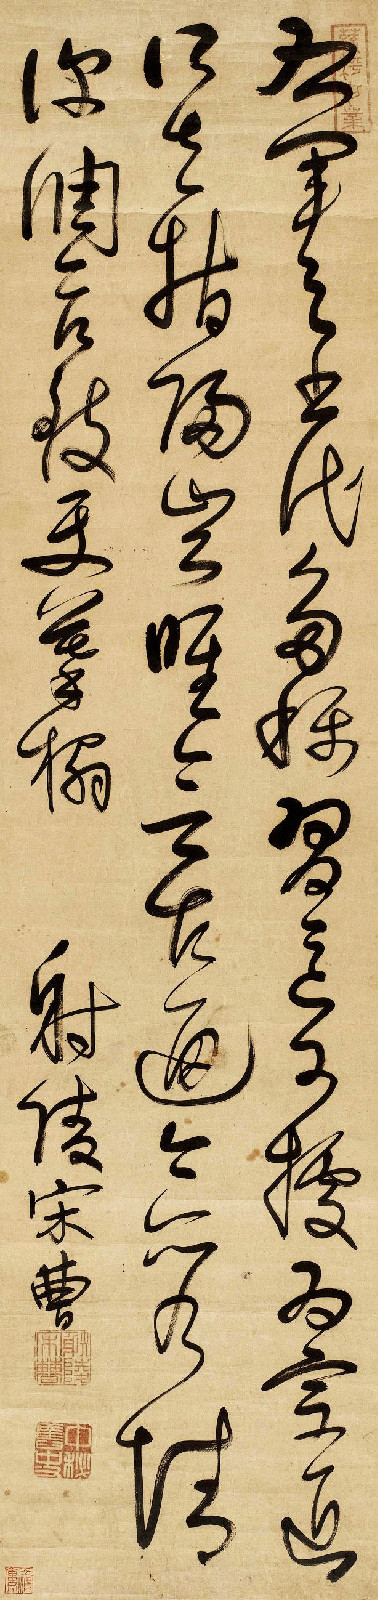 右軍之書代多稱習良可據為宗匠
取立指歸豈唯會古通今亦乃情
深調合致使摹搨
射陵宋曹